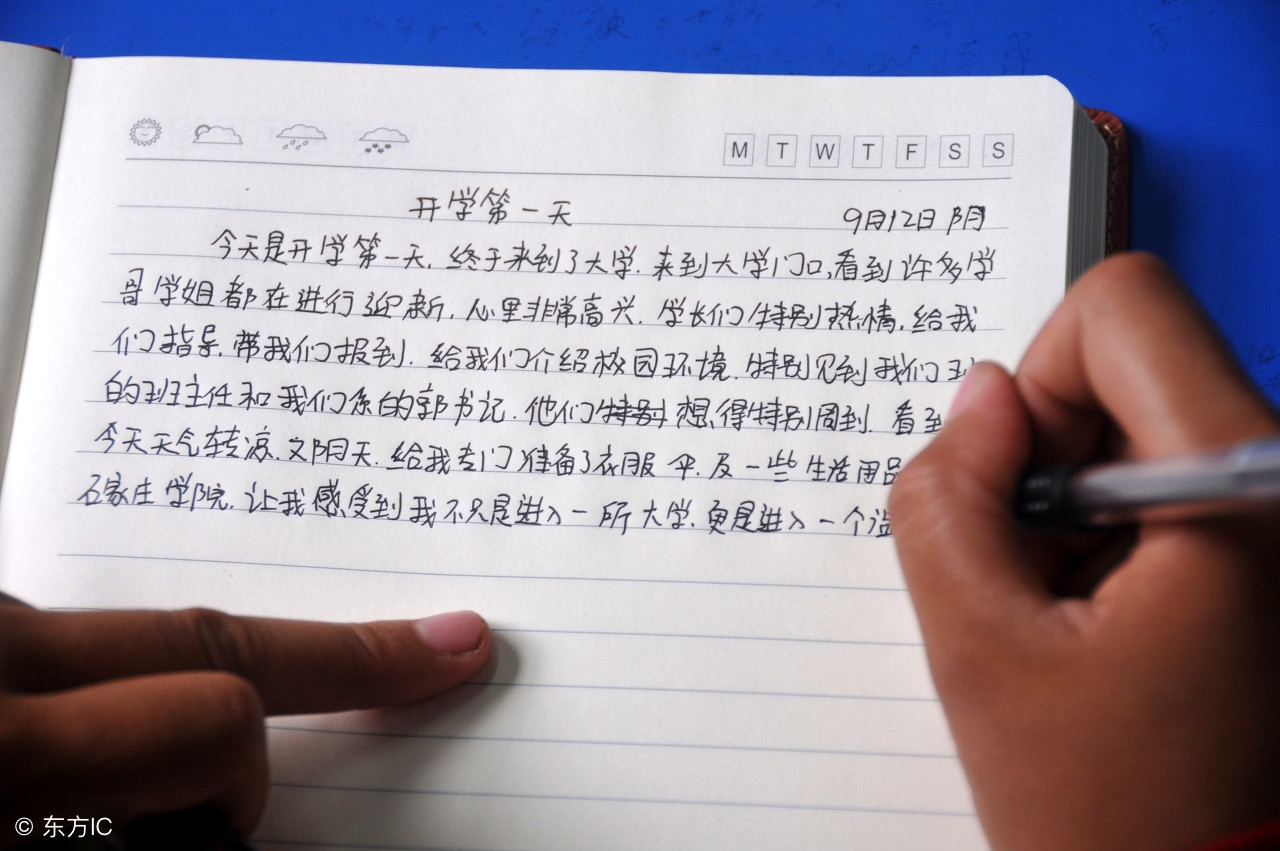 M T W T F S S
开学第一天
9月12日 阴
今天是开学第一天,终于来到了大学.来到大学门口,看到许多学
哥学姐都在进行迎新,心里非常高兴.学长们特别热情,给我
们指导,带我们报到.给我们介绍校园环境.特别见到我们
的班主任和我们系的郭书记.他们特别想得特别周到.看到
今天天气转凉,又阴天.给我专门准备了衣服 伞.及一些生活用品
石家庄学院.让我感受到我不只是进入一所大学,更是进入一个
© 东方IC